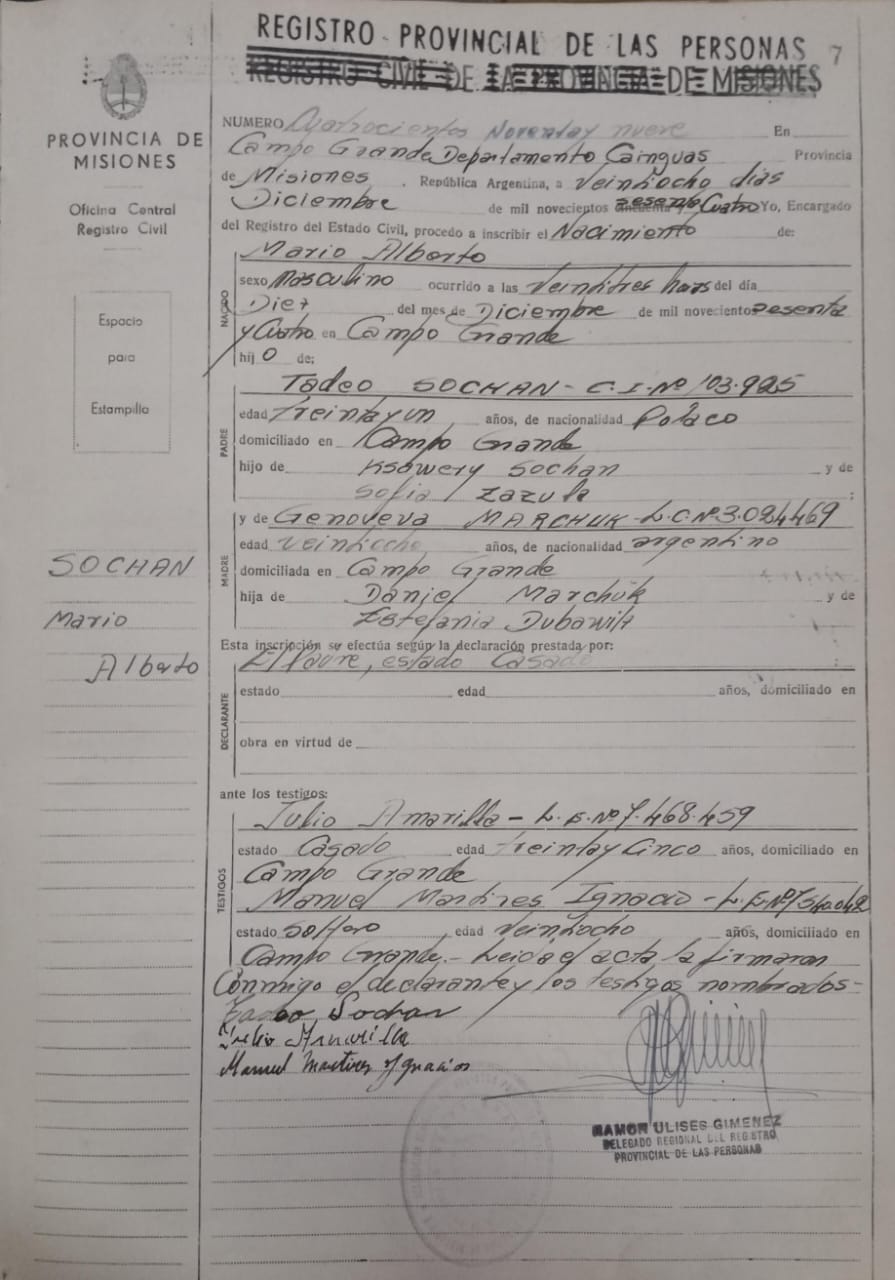 REGISTRO PROVINCIAL DE LAS PERSONAS 7
REGISTRO CIVIL DE LA PROVINCIA DE MISIONES
PROVINCIA DE
MISIONES
Oficina Central
Registro Civil
Espacio
para
Estampilla
SOCHAN
Mario
Alberto
NUMERO Cuatrocientos Noventay nueve En
Campo Grande Departamento Cainguas Provincia
de Misiones . República Argentina, a Veintiocho dias
Diciembre de mil novecientos sesenta Cuatro Yo, Encargado
del Registro del Estado Civil, procedo a inscribir el Nacimiento de:
Mario Alberto
NACIDO
sexo Masculino ocurrido a las Veintitres horas del día
Diez del mes de Diciembre de mil novecientos sesenta
y Cuatro en Campo Grande
hij O de:
PADRE
Tadeo SOCHAN - C.I. Nº 103.925
edad treintayun años, de nacionalidad Polaco
domiciliado en Campo Grande
hijo de Ksawery Sochan y de
Sofia Zazula ;
MADRE
y de Genoveva MARCHUK - L.C. Nº 3.024.469
edad Veintiocho años, de nacionalidad argentino
domiciliada en Campo Grande
hija de Daniel Marchuk y de
Estefania
Esta inscripción se efectúa según la declaración prestada por:
El Padre, estado Casado ;
DECLARANTE
estado edad años, domiciliado en
obra en virtud de
ante los testigos:
TESTIGOS
Julio Amarilla - L.E. Nº 7.468.459
estado Casado edad treintay Cinco años, domiciliado en
Campo Grande
Manuel Martires Ignacio - L.E. Nº 7540042
estado Soltero , edad Veintiocho años, domiciliado en
Campo Grande.- Leida el acta la firmaron
Conmigo el declarante y los testigos nombrados-
Tadeo Sochan
Julio Amarilla
Manuel Martires Ygnacio
RAMON ULISES GIMENEZ
DELEGADO REGIONAL DEL REGISTRO
PROVINCIAL DE LAS PERSONAS